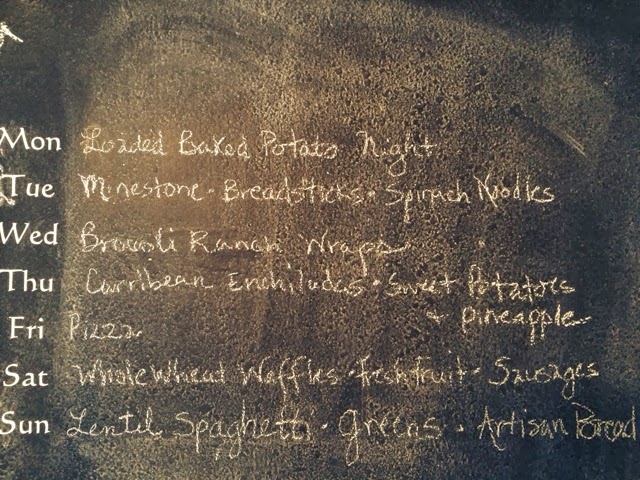 Mon Loaded Baked Potato Night
Tue Minestone · Breadsticks · Spinach Noodles
Wed Broccoli Ranch Wraps
Thu Carribean Enchiladas · Sweet Potatoes
+ pineapple
Fri Pizza
Sat Whole Wheat Waffles · fresh fruit · Sausages
Sun Lentil Spaghetti · Greens · Artisan Bread